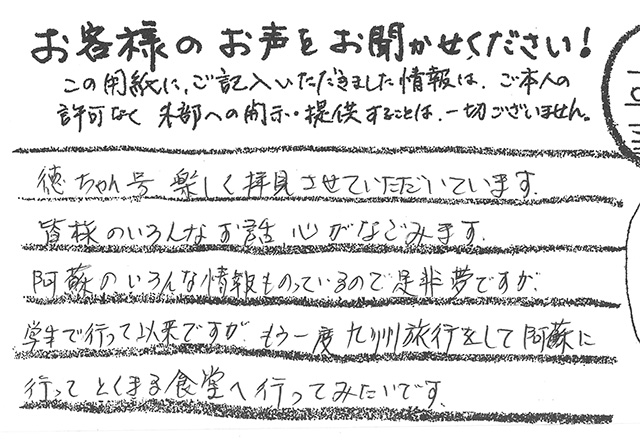 お客様のお声をお聞かせください!
この用紙に、ご記入いただきました情報は、ご本人の
許可なく 外部への開示・提供することは、一切ございません。
徳ちゃん号 楽しく拝見させていただいています.
皆様のいろんなお話 心がなごみます.
阿蘇のいろんな情報ものっているので是非夢ですが、
学生で行って以来ですが もう一度 九州旅行をして阿蘇に
行って とくまる食堂へ行ってみたいです.